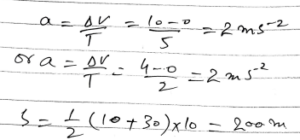 a = ΔV/T = 10-0/5 = 2 ms⁻²
or a = ΔV/T = 4-0/2 = 2 ms⁻²
S = 1/2 (10+30)×10 = 200m